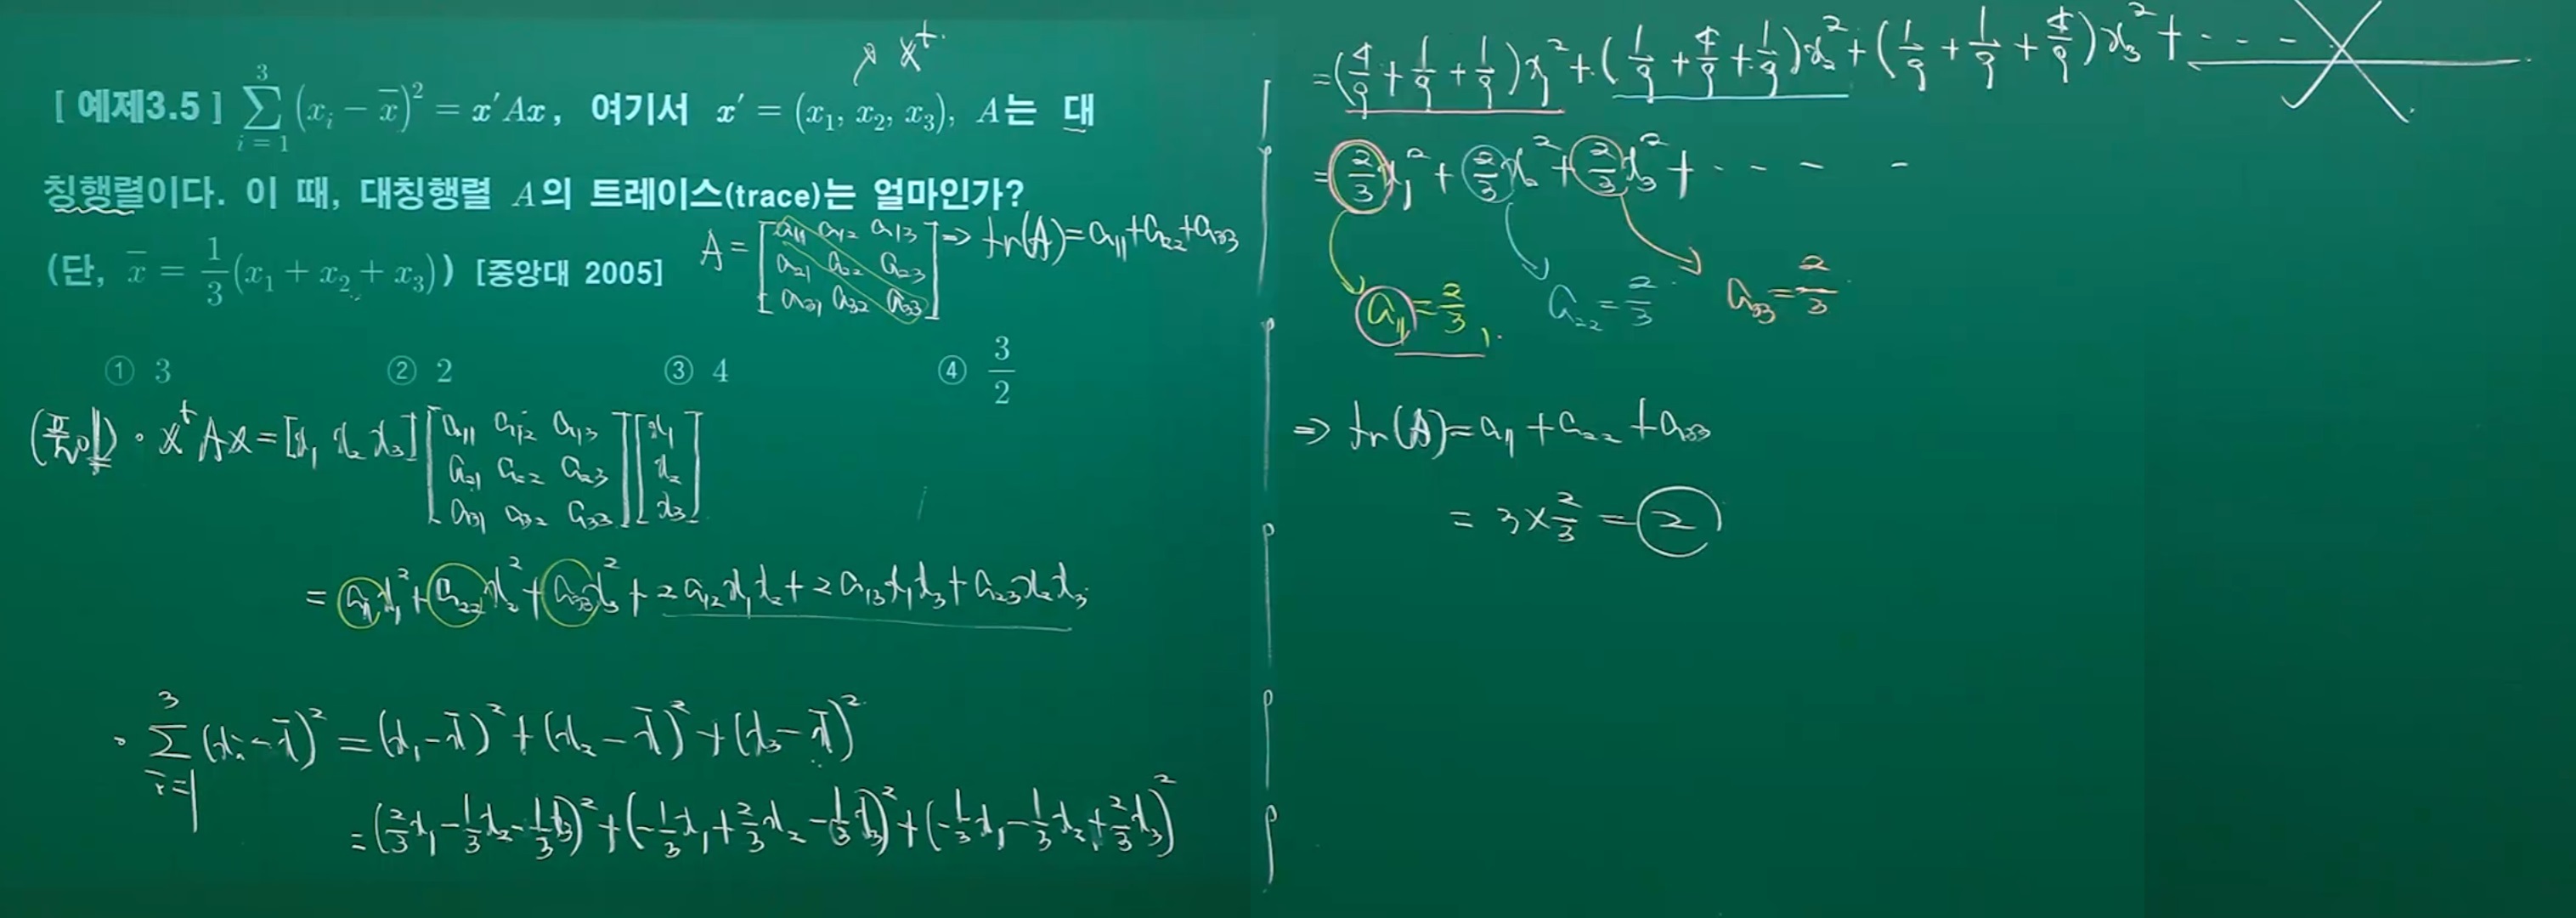 ↗ x^t
[ 예제3.5 ] \sum_{i=1}^{3} (x_i - \bar{x})^2 = x'Ax, 여기서 x' = (x_1, x_2, x_3), A는 대
칭행렬이다. 이 때, 대칭행렬 A의 트레이스(trace)는 얼마인가?
(단, \bar{x} = \frac{1}{3}(x_1 + x_2 + x_3)) [중앙대 2005]
A = [a_{11} a_{12} a_{13}; a_{21} a_{22} a_{23}; a_{31} a_{32} a_{33}] ⇒ tr(A) = a_{11} + a_{22} + a_{33}
① 3 ② 2 ③ 4 ④ \frac{3}{2}
(풀이) · x^t A x = [x_1 x_2 x_3] [a_{11} a_{12} a_{13}; a_{21} a_{22} a_{23}; a_{31} a_{32} a_{33}] [x_1; x_2; x_3]
= a_{11}x_1^2 + a_{22}x_2^2 + a_{33}x_3^2 + 2a_{12}x_1x_2 + 2a_{13}x_1x_3 + a_{23}x_2x_3
· \sum_{i=1}^{3} (x_i - \bar{x})^2 = (x_1 - \bar{x})^2 + (x_2 - \bar{x})^2 + (x_3 - \bar{x})^2
= (\frac{2}{3}x_1 - \frac{1}{3}x_2 - \frac{1}{3}x_3)^2 + (-\frac{1}{3}x_1 + \frac{2}{3}x_2 - \frac{1}{3}x_3)^2 + (-\frac{1}{3}x_1 - \frac{1}{3}x_2 + \frac{2}{3}x_3)^2
= (\frac{4}{9} + \frac{1}{9} + \frac{1}{9})x_1^2 + (\frac{1}{9} + \frac{4}{9} + \frac{1}{9})x_2^2 + (\frac{1}{9} + \frac{1}{9} + \frac{4}{9})x_3^2 + - - -
= \frac{2}{3}x_1^2 + \frac{2}{3}x_2^2 + \frac{2}{3}x_3^2 + - - - -
a_{11} = \frac{2}{3}, a_{22} = \frac{2}{3} a_{33} = \frac{2}{3}
⇒ tr(A) = a_{11} + a_{22} + a_{33}
= 3 × \frac{2}{3} = 2